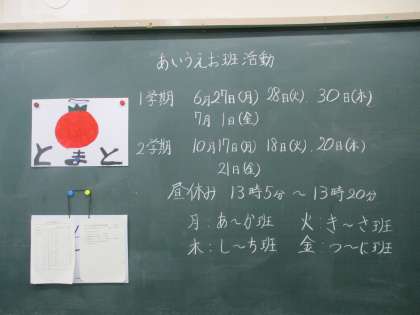 あいうえお班活動
1学期 6月27日(月) 28日(火) 30日(木)
7月1日(金)
2学期 10月17日(月) 18日(火) 20日(木)
21日(金)
昼休み 13時5分～13時20分
月:あ～か班 火:き～さ班
木:し～ち班 金:つ～に班
とまと